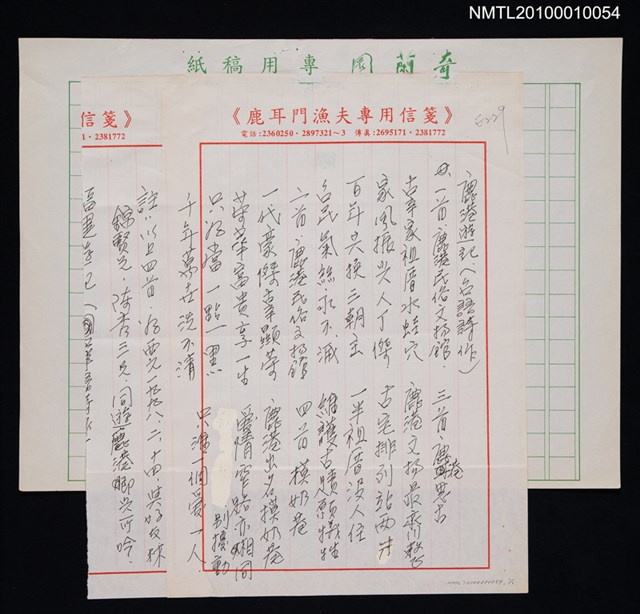 NMTL20100010054
奇蘭園專用稿紙
《鹿耳門漁夫專用信箋》
電話:2360250・2897321～3 傳真:2695171・2381772
6229
鹿港遊記(台語詩作)
一首 鹿港民俗文物館
辜家祖厝水蛙穴
家風振興人丁傑
百年興換三朝主
台民氣絲永不滅
二首 鹿港民俗文物館
一代豪傑辜顯榮
榮華富貴享一生
只為當一點黑
千年萬世洗不清
三首 鹿港
鹿港文物最齊
古宅排列站兩
一半祖厝沒人住
維護古蹟願犧牲
四首 摸奶巷
鹿港出名摸奶巷
愛情 路亦相同
別擾動
只准一個愛一人
信箋》
1・2381772
註:以上四首,為西元一九九八.六.十四.與好友林
錦賢兄、陳 三兄,同遊鹿港鄉 所吟.